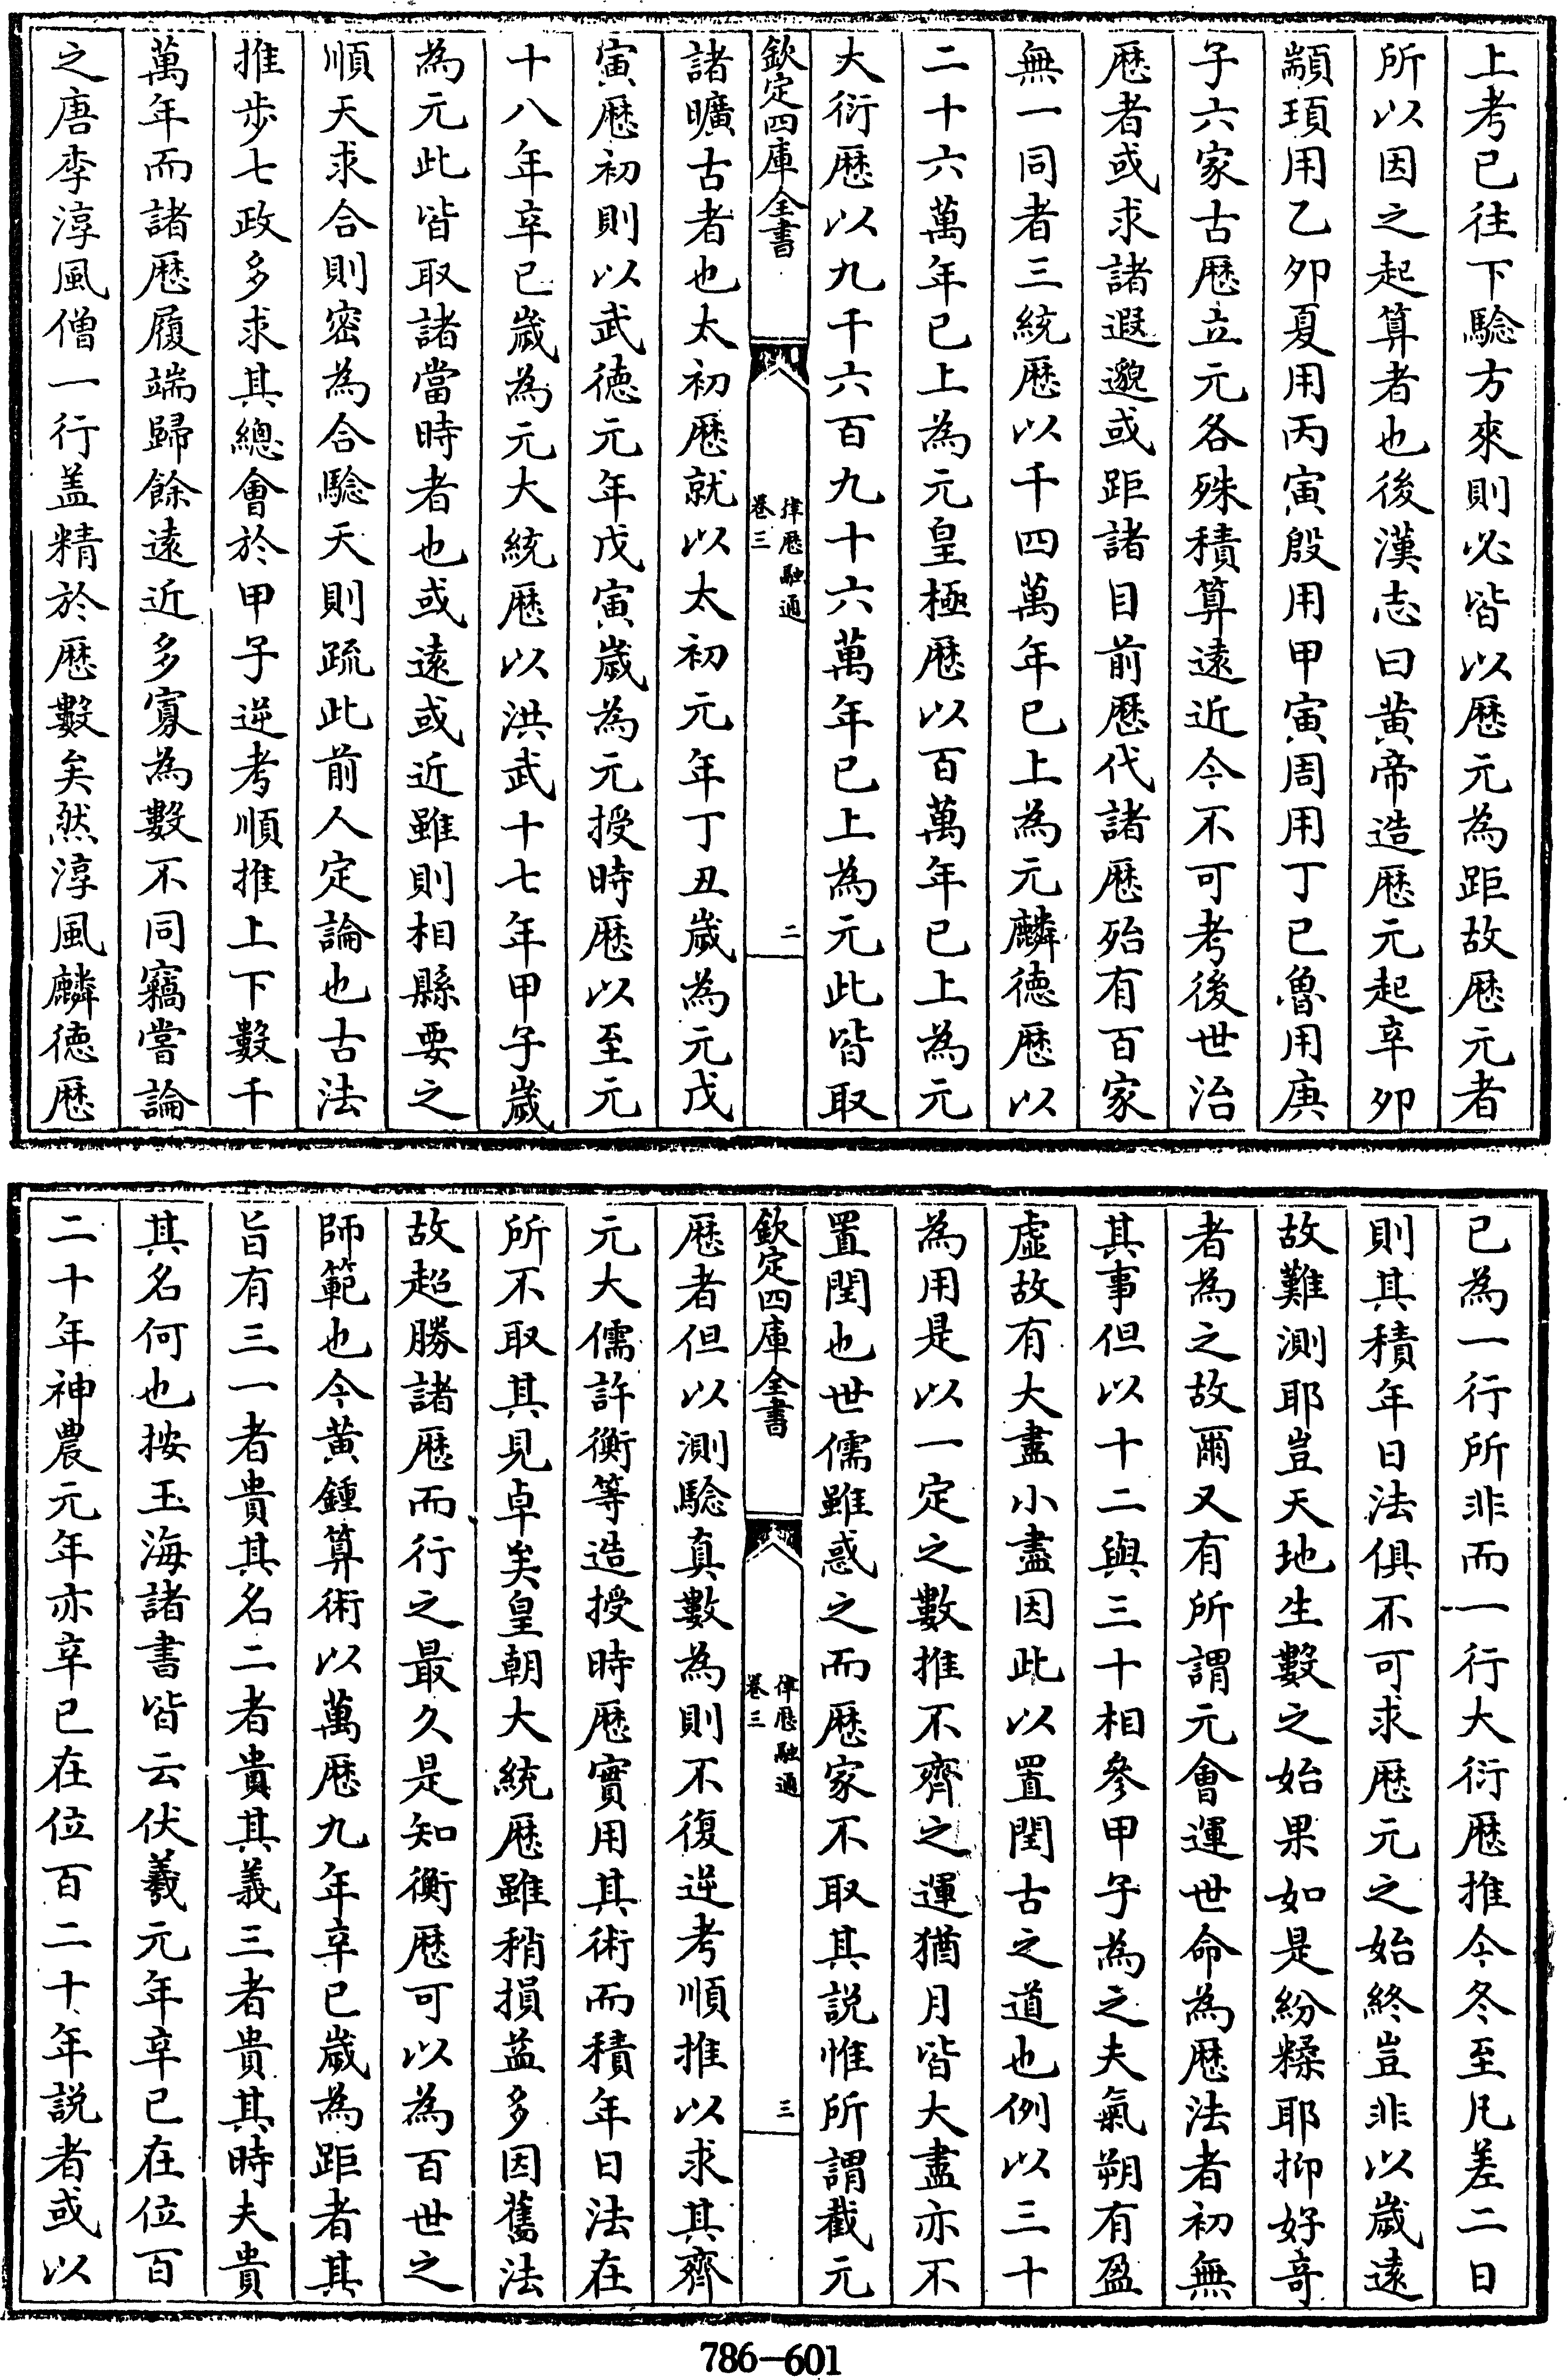 上考已往下騐方來則必皆以厯元為距故厯元者
所以因之起算者也後漢志曰黃帝造厯元起辛卯
顓頊用乙夘夏用丙寅殷用甲寅周用丁巳魯用庚
子六家古厯立元各殊積算遠近今不可考後世治
厯者或求諸遐邈或距諸目前厯代諸厯殆有百家
無一同者三統厯以千四萬年已上為元麟德厯以
二十六萬年已上為元皇極厯以百萬年已上為元
大衍厯以九千六百九十六萬年已上為元此皆取
欽定四庫全書
律厯融通
卷三
二
諸曠古者也太初厯就以太初元年丁丑歲為元戊
寅厯初則以武德元年戊寅歲為元授時厯以至元
十八年辛巳歲為元大統厯以洪武十七年甲子歲
為元此皆取諸當時者也或遠或近雖則相縣要之
順天求合則密為合騐天則疏此前人定論也古法
推步七政多求其總會於甲子逆考順推上下數千
萬年而諸厯履端歸餘遠近多寡為數不同竊嘗論
之唐李淳風僧一行盖精於厯數矣然淳風麟德厯
已為一行所非而一行大衍厯推今冬至凡差二日
則其積年日法俱不可求厯元之始終豈非以歲遠
故難測耶豈天地生數之始果如是紛糅耶抑好竒
者為之故爾又有所謂元會運世命為厯法者初無
其事但以十二與三十相參甲子為之夫氣朔有盈
虛故有大盡小盡因此以置閏古之道也例以三十
為用是以一定之數推不齊之運猶月皆大盡亦不
置閏也世儒雖惑之而厯家不取其説惟所謂截元
欽定四庫全書
律厯融通
卷三
三
厯者但以測騐真數為則不復逆考順推以求其齊
元大儒許衡等造授時厯實用其術而積年日法在
所不取其見卓矣皇朝大統厯雖稍損益多因舊法
故超勝諸厯而行之最久是知衡厯可以為百世之
師範也今黃鍾算術以萬厯九年辛巳歲為距者其
旨有三一者貴其名二者貴其義三者貴其時夫貴
其名何也按玉海諸書皆云伏羲元年辛巳在位百
二十年神農元年亦辛巳在位百二十年説者或以
786-601